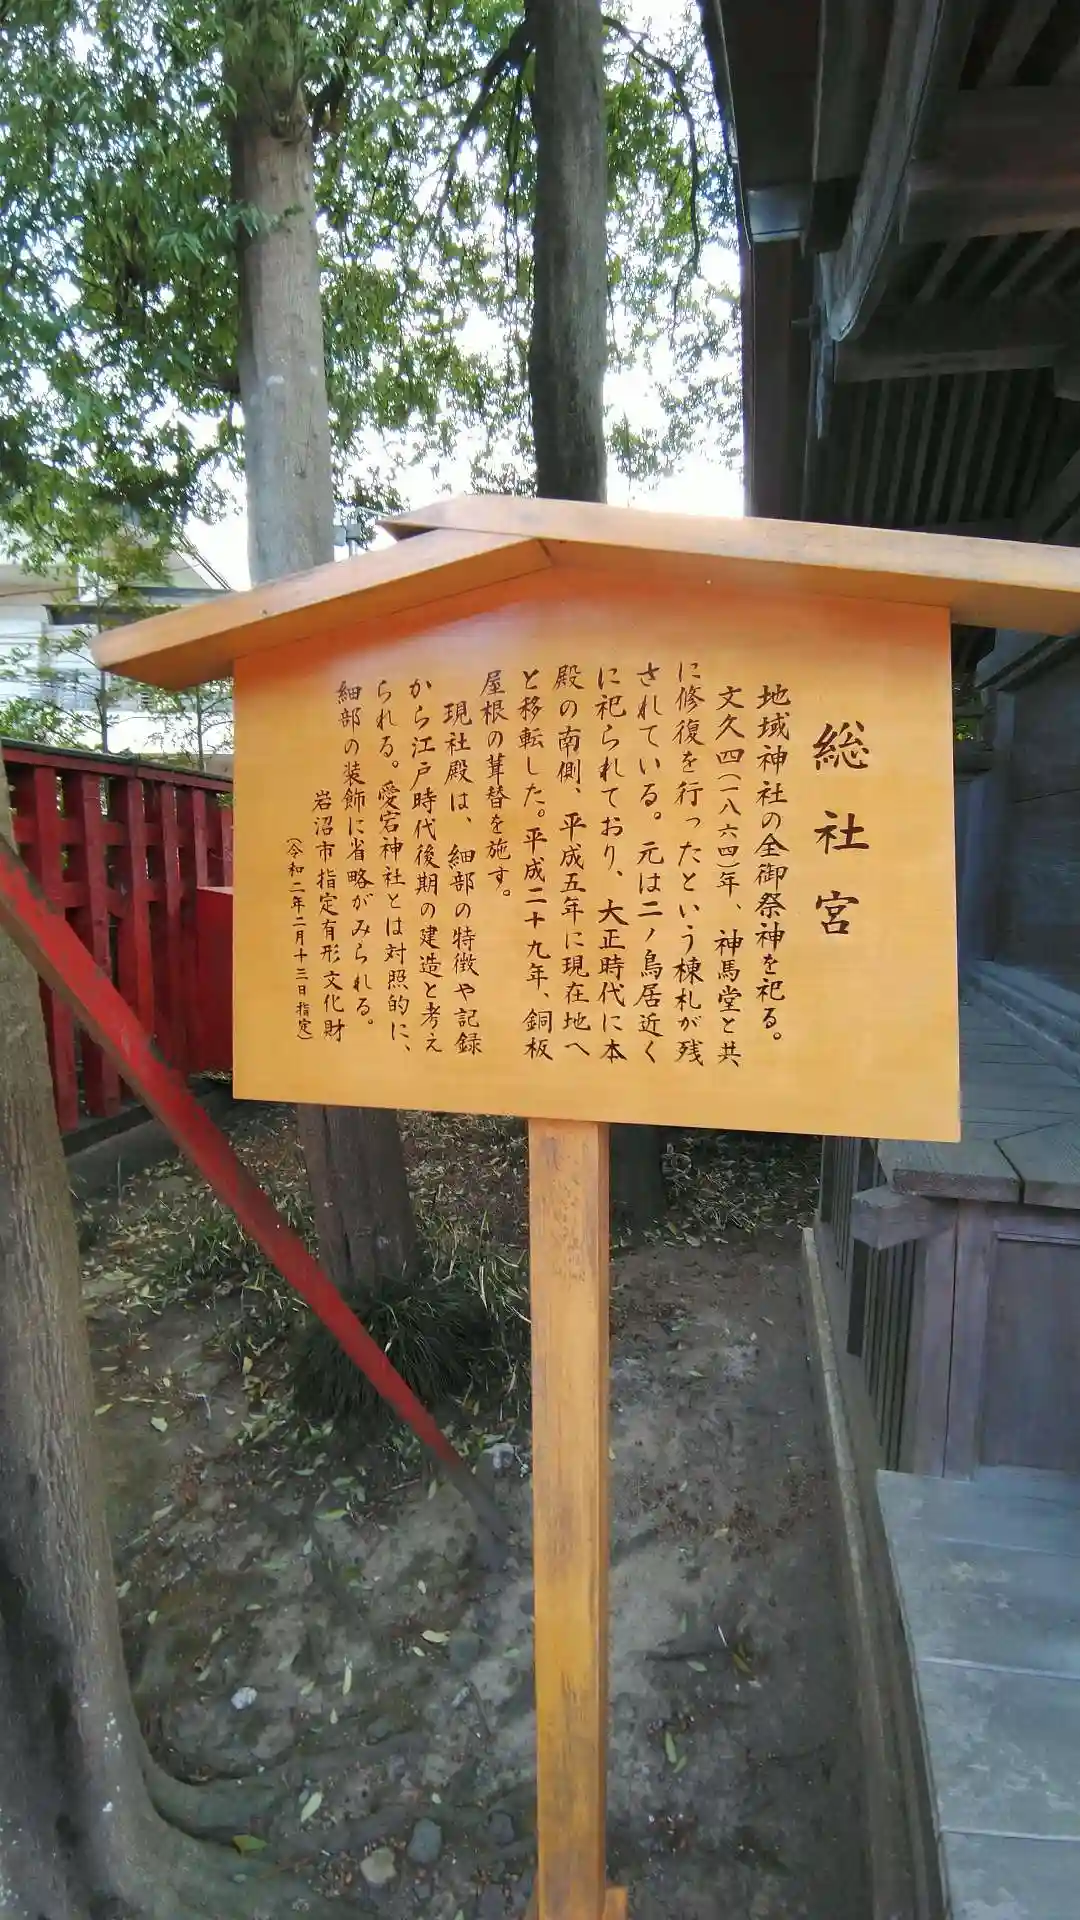 総社宮
地域神社の全御祭神を祀る。
文久四(一八六四)年、神馬堂と共
に修復を行ったという棟札が残
されている。元は二ノ鳥居近く
に祀られており、大正時代に本
殿の南側、平成五年に現在地へ
と移転した。平成二十九年、銅板
屋根の葺替を施す。
現社殿は、細部の特徴や記録
から江戸時代後期の建造と考え
られる。愛宕神社とは対照的に、
細部の装飾に省略がみられる。
岩沼市指定有形文化財
(令和二年二月十三日指定)